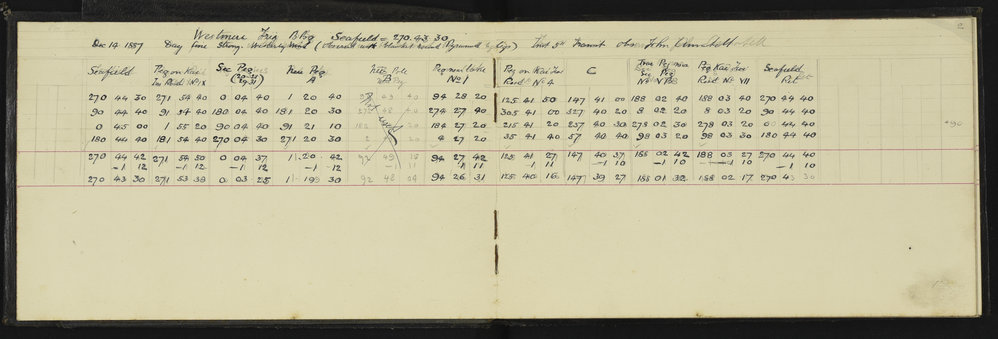 2
Westmere Trig Bldg Seafield = 270. 43 30
Dec 14 1887 Day fine Strong Westerly Wind (observed with blanket round Pyramid legs) Inst 5in Transit obs John
Seafield Peg on Kai Iwi Road No IX Sec Peg Kai Peg A Peg near Lake No 1 Peg on Kai Iwi Road No 4 C Peg Kai Iwi Road No VII Seafield Ret
270 44 30 271 54 40 0 04 40 1 20 40 94 28 20 125 41 50 147 41 00 188 02 40 188 03 40 270 44 40
90 44 40 91 54 40 180 04 40 181 20 40 274 27 40 305 41 00 327 40 20 8 02 20 8 03 20 90 44 40
0 45 00 1 55 20 90 04 40 91 21 10 184 27 20 215 41 20 237 40 30 278 02 30 278 03 20 00 44 40
180 44 40 181 54 40 270 04 30 271 20 30 4 27 20 35 41 40 57 40 40 98 03 20 98 03 30 180 44 40
270 44 42 271 54 50 0 04 37 1 20 42 92 49 94 27 42 125 41 27 147 40 37 188 02 42 188 03 27 270 44 40
-1 12 -1 12 -1 12 -1 12 11 -1 10 -1 10 -1 10 -1 10
270 43 30 271 53 38 0 03 25 1 19 30 92 48 94 26 31 125 40 16 147 39 27 188 01 32 188 02 17 270 43 30